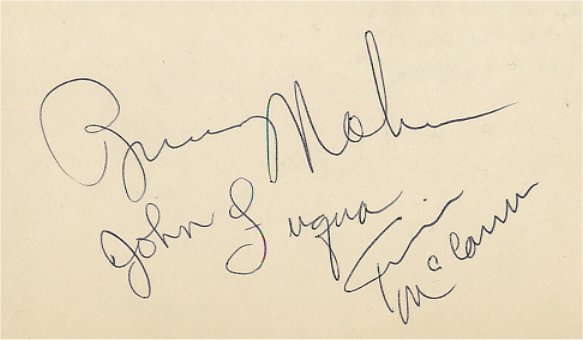 Bruce Maher
John Fuqua
Tim
McCann